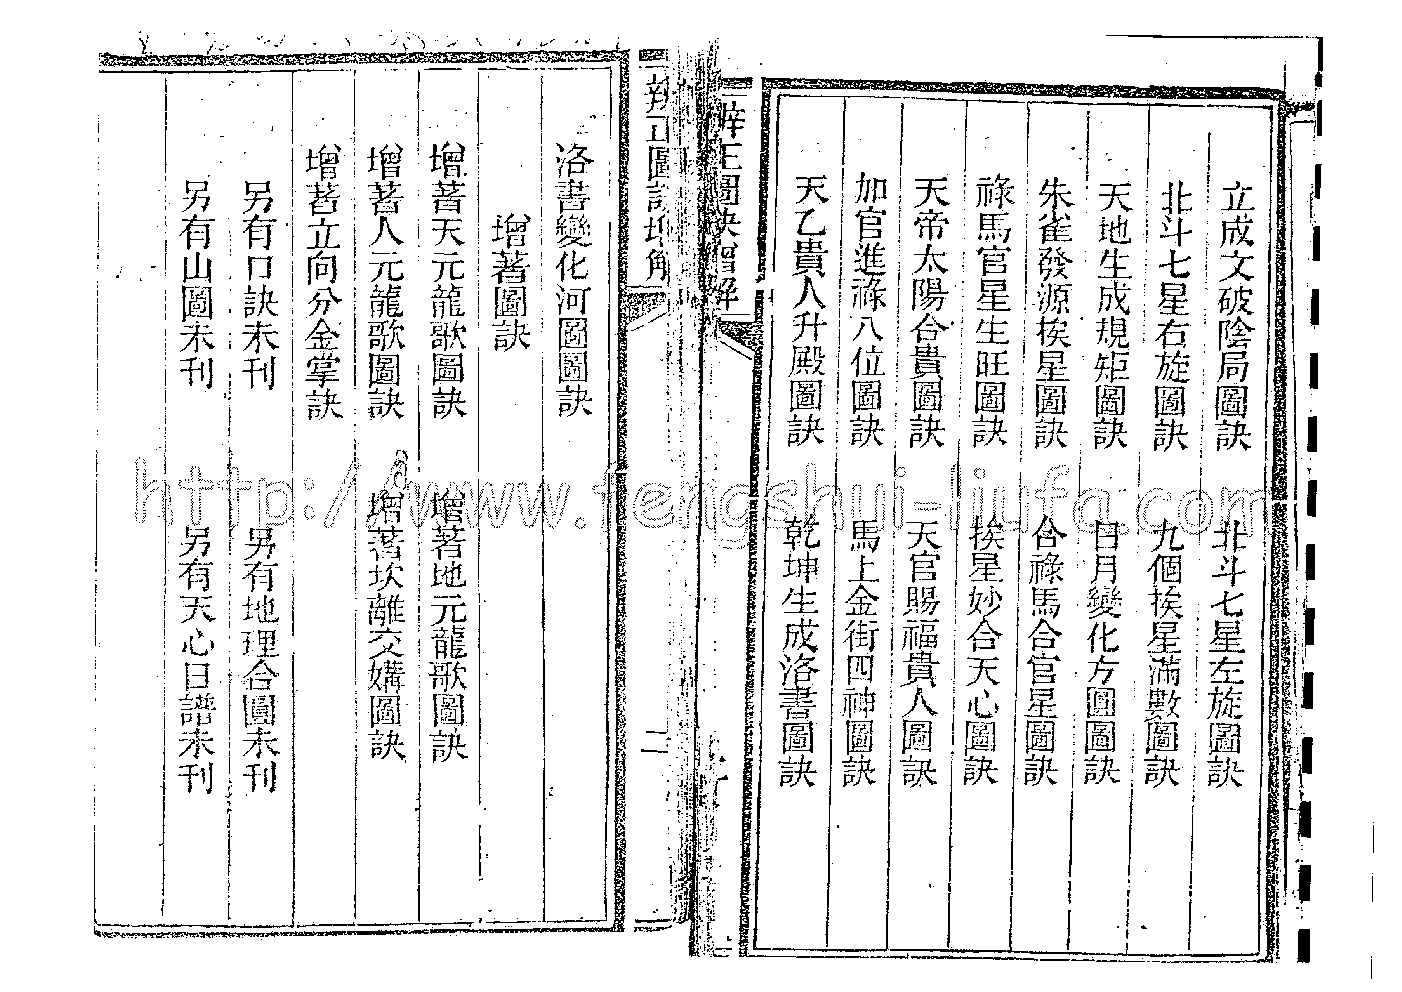 立成文破陰局圖訣
北斗七星左旋圖訣
北斗七星右旋圖訣
九個挨星滿數圖訣
天地生成規矩圖訣
日月變化方圓圖訣
朱雀發源挨星圖訣
合祿馬合官星圖訣
祿馬官星生旺圖訣
挨星妙合天心圖訣
天帝太陽合貴圖訣
天官賜福貴人圖訣
加官進祿八位圖訣
馬上金街四神圖訣
天乙貴人升殿圖訣
乾坤生成洛書圖訣
辨正圖訣增解
辨正圖訣增解
二
洛書變化河圖圖訣
增著圖訣
增著天元龍歌圖訣
增著地元龍歌圖訣
增著人元龍歌圖訣
增著坎離交媾圖訣
增著立向分金掌訣
另有口訣未刊
另有地理合圖未刊
另有山圖未刊
另有天心日譜未刊
http://www.fengshui-liufa.com